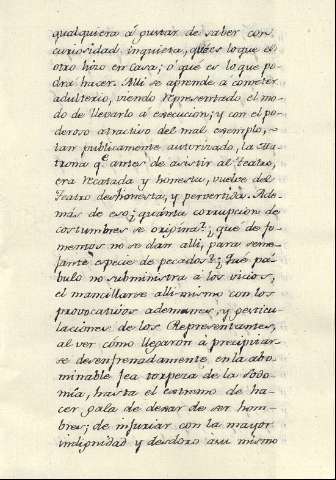 qualquiera á pustar de saber con
curiosidad inquieta, qué es lo que el
otro hizo en Casa; ó qué es lo que po-
drá hacer. Alli se aprende á cometer
adulterio, viendo representado el mo-
do de llevarlo á execucion; y con el po-
deroso atractivo del mal exemplo,
tan publicamente autorizado, la Ma-
trona qe. antes de asistir al Teatro,
era recatada y honesta, vuelve del
Teatro deshonesta, y pervertida. Ade-
más de eso; quánta corrupcion de
costumbres se origina?¿ qué de fo-
mentos no se dan alli, para seme-
jante especie de pecados?¿ Qué pá-
bulo no subministra a los vicios,
el mancillarse alli mismo con los
provocativos ademanes, y gesticu-
laciones de los Representantes,
al ver cómo llegaron á precipitar-
se desenfrenadamente en la abo-
minable fea torpeza de la Sodo-
mía, hasta el extremo de ha-
cer gala de dexar de ser hom-
bres; de injuriar con la mayor
indignidad y desdoro á su mismo